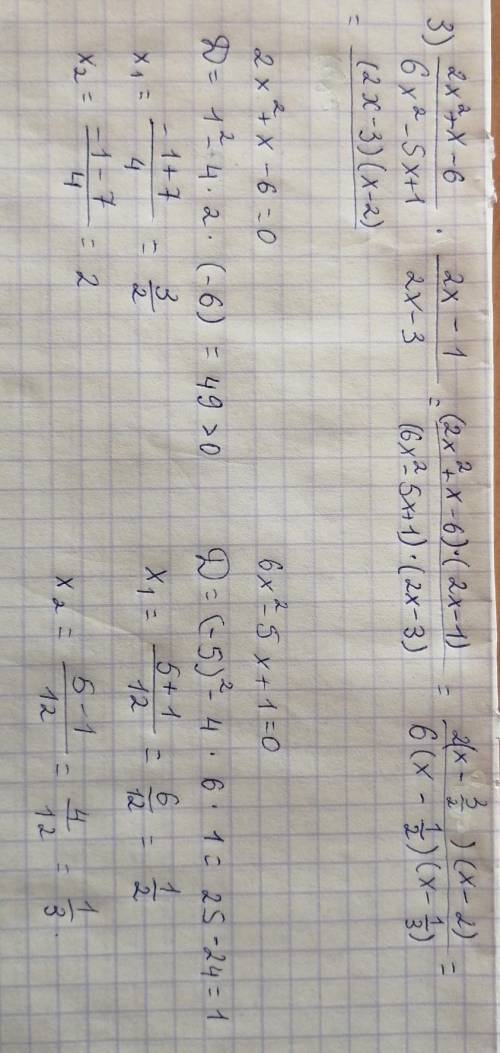 3) (2x²+x-6)/(6x²-5x+1) · (2x-1)/(2x-3) = ((2x²+x-6)·(2x-1))/((6x²-5x+1)·(2x-3)) = (2(x-3/2)(x-2))/(6(x-1/2)(x-1/3)) =
= (2x-3)(x-2)
2x²+x-6=0
D = 1²-4·2·(-6) = 49>0
x₁ = (-1+7)/4 = 3/2
x₂ = (-1-7)/4 = 2
6x²-5x+1=0
D=(-5)²-4·6·1=25-24=1
x₁ = (5+1)/12 = 6/12 = 1/2
x₂ = (5-1)/12 = 4/12 = 1/3.